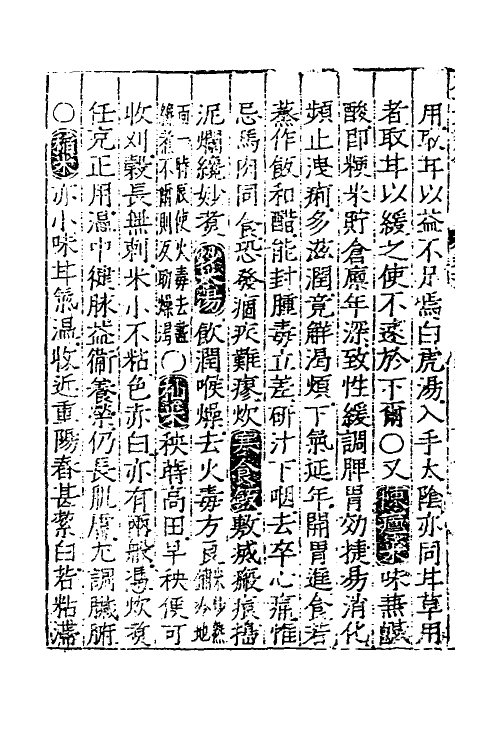 用取甘以益不足焉白虎湯入手太陰亦同甘草用
者取甘以緩之使不速於下爾○又陳廩米味兼鹹
酸即粳米貯倉廩年深致性緩調脾胃効捷易消化
頻止洩痢多滋潤竟解渴煩下氣延年開胃進食若
蒸作飯和醋能封腫毒立差研汁下咽去卒心痛惟
忌馬肉同食恐發痼疾難瘳炊寒食飯敷滅瘢痕搗
泥爛纔妙煮炒米湯飲潤喉燥去火毒方良
雨一時辰使火毒去盡
不爾則反助燥渴○秈米秧蒔高田早秧便可
收刈穀長無刺米小不粘色亦白亦有兩般憑炊煮
任充正用溫中健脉益衛養榮仍長肌膚尤調臟腑
○稻米亦小味甘氣溫收近重陽春甚紫白若粘滯